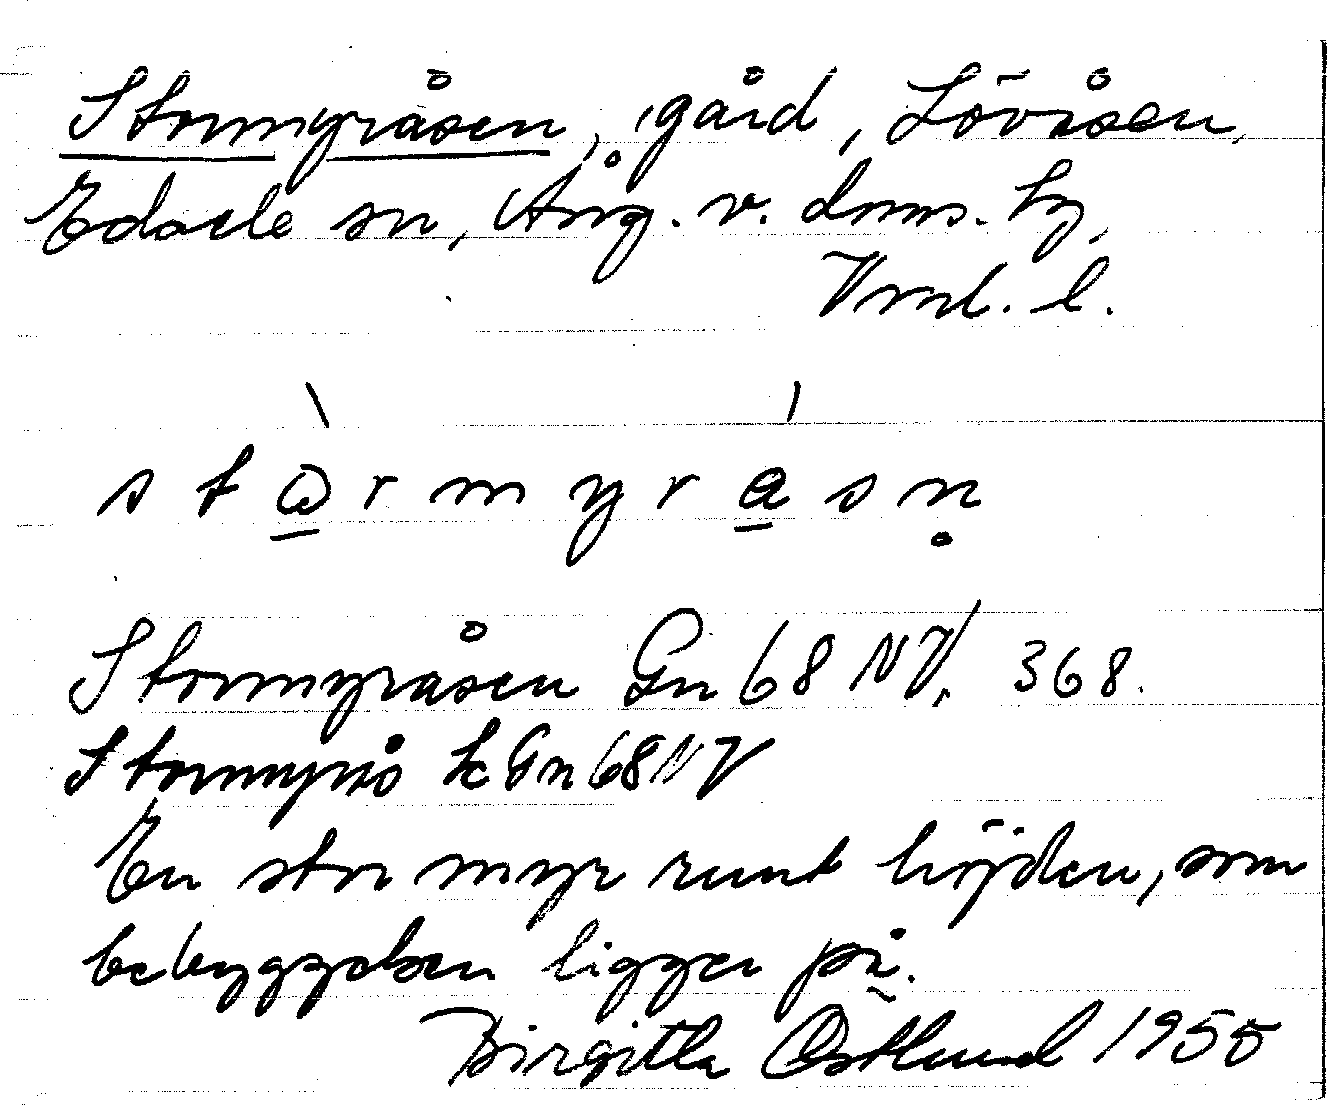 Stormyråsen, gård, Lövåsen,
Edsele sn, Ång. v. doms. hg,
Vnl. l.
s t o r m y r a s n
Stormyråsen Gn 68 NV, 368.
Stormyrås k Gn 68 NV
En stor myr runt höjden, som
bebyggelsen ligger på.
Birgitta Östlund 1955